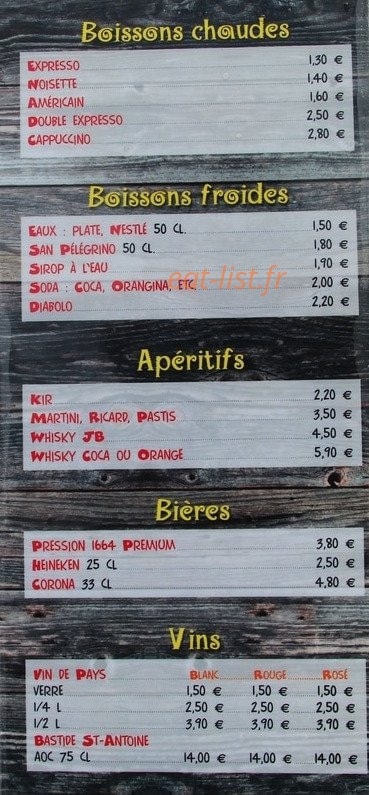 Boissons chaudes
Expresso 1,30 €
Noisette 1,40 €
Américain 1,60 €
Double expresso 2,50 €
Cappuccino 2,80 €
Boissons froides
Eaux : plate, Nestlé 50 cl. 1,50 €
San Pélégrino 50 cl. 1,80 €
Sirop à l'eau 1,90 €
Soda : Coca, Orangina, etc 2,00 €
eat-list.fr
Diabolo 2,20 €
Apéritifs
Kir 2,20 €
Martini, Ricard, Pastis 3,50 €
Whisky JB 4,50 €
Whisky Coca ou Orange 5,90 €
Bières
Pression 1664 Premium 3,80 €
Heineken 25 cl 2,50 €
Corona 33 cl 4,80 €
Vins
Vin de Pays Blanc Rouge Rosé
Verre 1,50 € 1,50 € 1,50 €
1/4 l 2,50 € 2,50 € 2,50 €
1/2 l 3,90 € 3,90 € 3,90 €
Bastide St-Antoine
AOC 75 cl 14,00 € 14,00 € 14,00 €